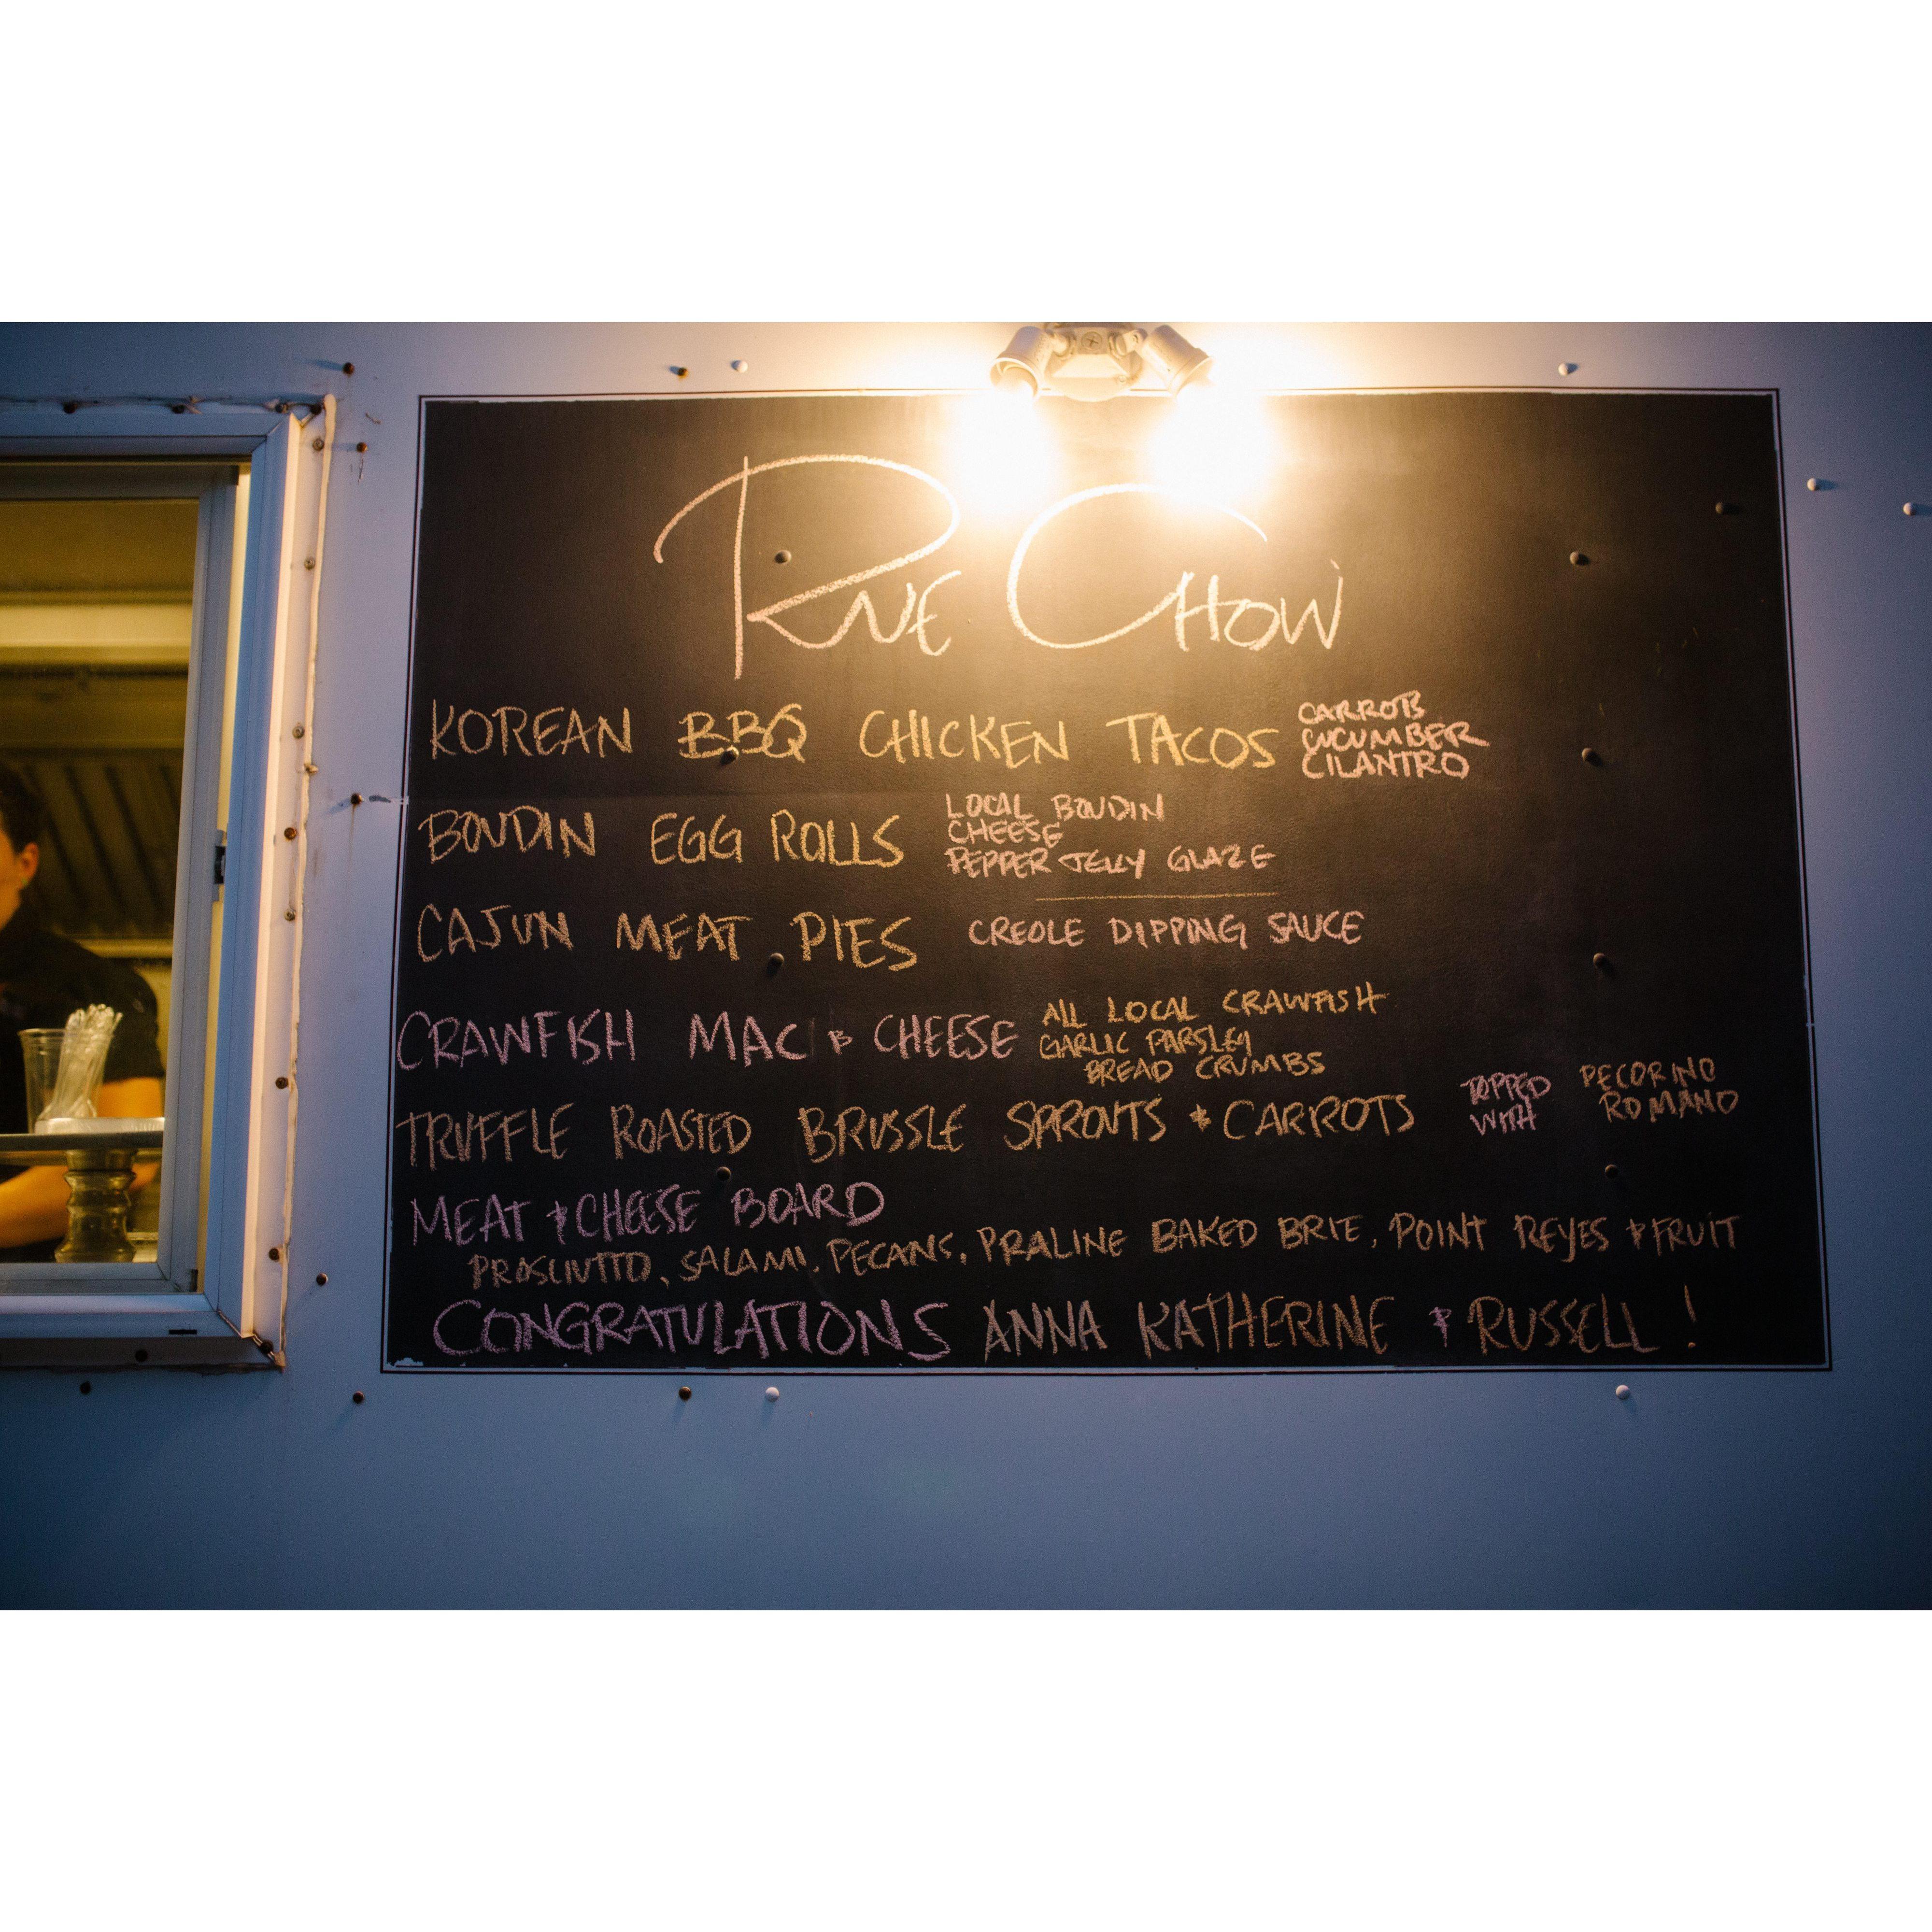 RUE CHOW
KOREAN BBQ CHICKEN TACOS
CARROTS
CUCUMBER
CILANTRO
BOUDIN EGG ROLLS
LOCAL BOUDIN
CHEESE
PEPPER JELLY GLAZE
CAJUN MEAT PIES
CREOLE DIPPING SAUCE
CRAWFISH MAC & CHEESE
ALL LOCAL CRAWFISH
GARLIC PARSLEY
BREAD CRUMBS
TRUFFLE ROASTED BRUSSLE SPROUTS & CARROTS
TOPPED
WITH
PECORINO
ROMANO
MEAT & CHEESE BOARD
PROSCIUTTO, SALAMI, PECANS, PRALINE BAKED BRIE, POINT REYES & FRUIT
CONGRATULATIONS ANNA KATHERINE & RUSSELL!